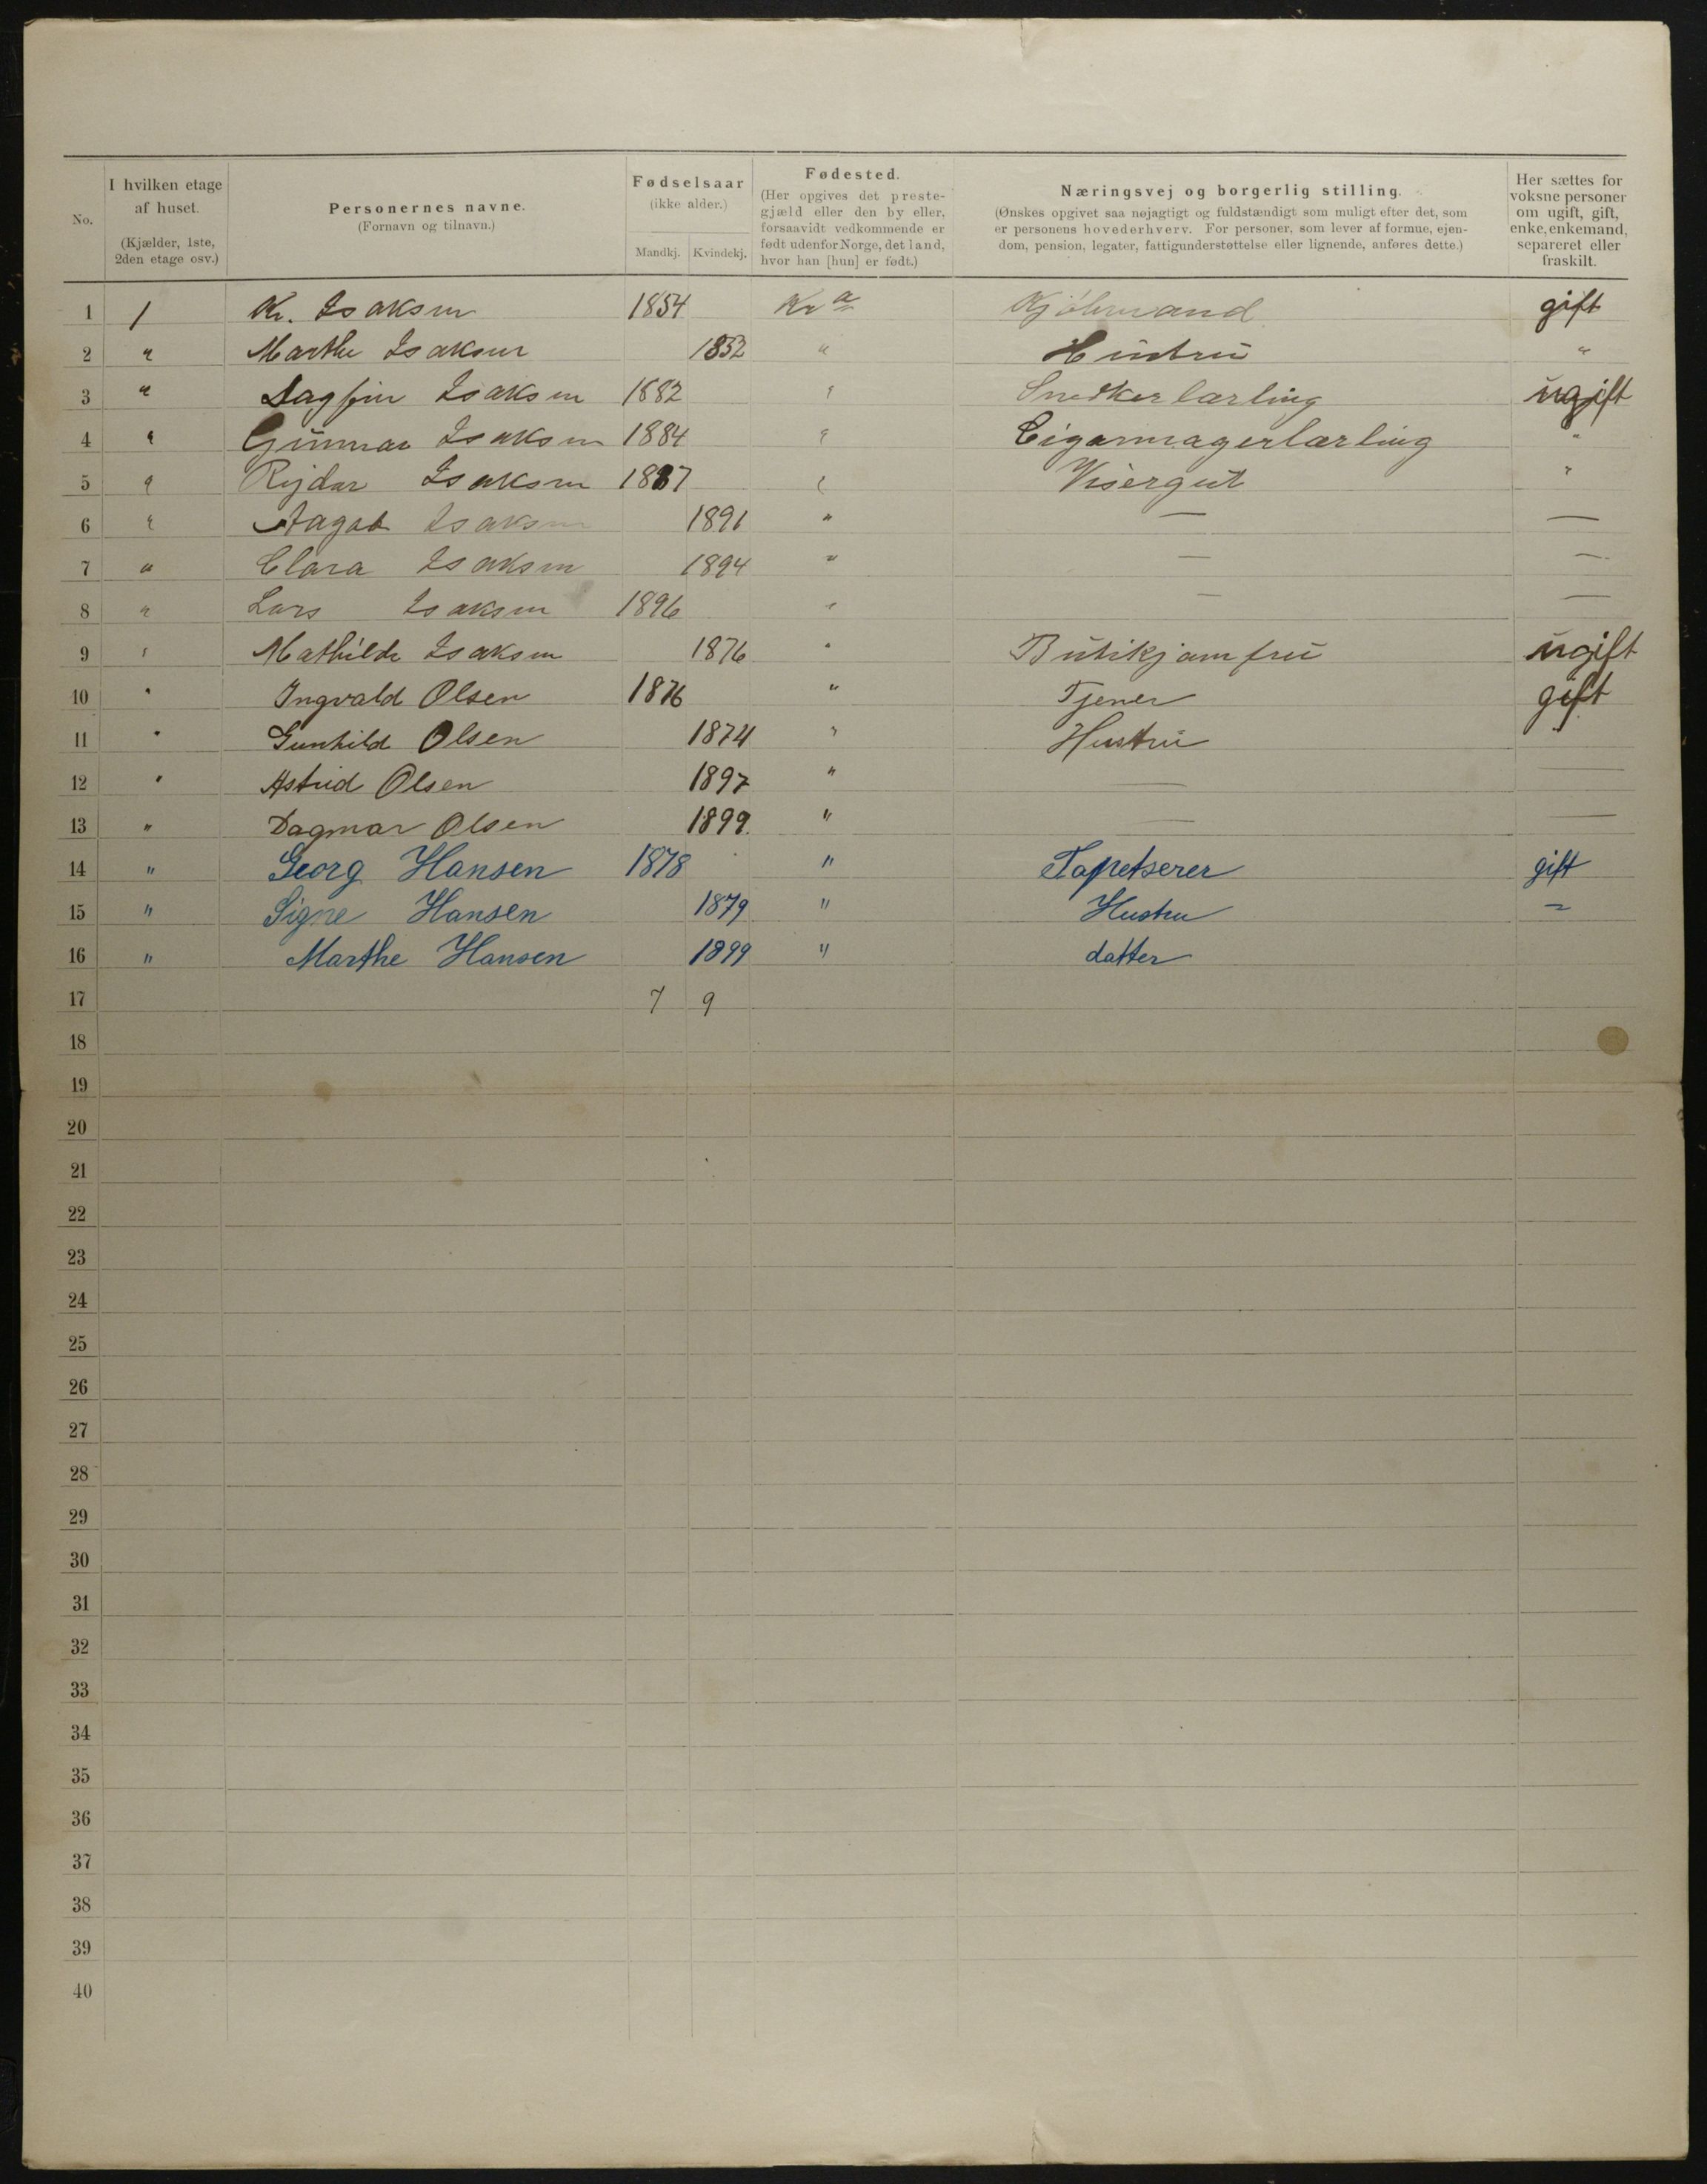 No.
I hvilken etage af huset. (Kjælder, 1ste, 2den etage osv.)
Personernes navne. (Fornavn og tilnavn.)
Fødselsaar (ikke alder.) Mandkj. Kvindekj.
Fødested. (Her opgives det prestegjæld eller den by eller, forsaavidt vedkommende er født udenfor Norge, det land, hvor han [hun] er født.)
Næringsvej og borgerlig stilling. (Ønskes opgivet saa nøjagtigt og fuldstændigt som muligt efter det, som er personens hovederhverv. For personer, som lever af formue, ejendom, pension, legater, fattigunderstøttelse eller lignende, anføres dette.)
Her sættes for voksne personer om ugift, gift, enke, enkemand, separeret eller fraskilt.
1 1 Kr. Isaksen 1854 Kra gift
2 " Marthe Isaksen 1852 " Hustru "
3 " Dagfin Isaksen 1882 " Snedkerlærling ugift
4 " Gunnar Isaksen 1884 " Cigarmagerlærling "
5 " Rejdar Isaksen 1887 " Visergut "
6 " Aagot Isaksen 1891 " — —
7 " Clara Isaksen 1894 " — —
8 " Lars Isaksen 1896 " — —
9 " Mathilde Isaksen 1876 " Butikjomfru ugift
10 " Ingvald Olsen 1876 " Tjener gift
11 " Gunhild Olsen 1874 " Hustru "
12 " Astrid Olsen 1897 " — —
13 " Dagmar Olsen 1899. " — —
14 " Georg Hansen 1878 " Tapetserer gift
15 " Signe Hansen 1879 " Hustru "
16 " Marthe Hansen 1899 " datter
17 7 9
18
19
20
21
22
23
24
25
26
27
28
29
30
31
32
33
34
35
36
37
38
39
40